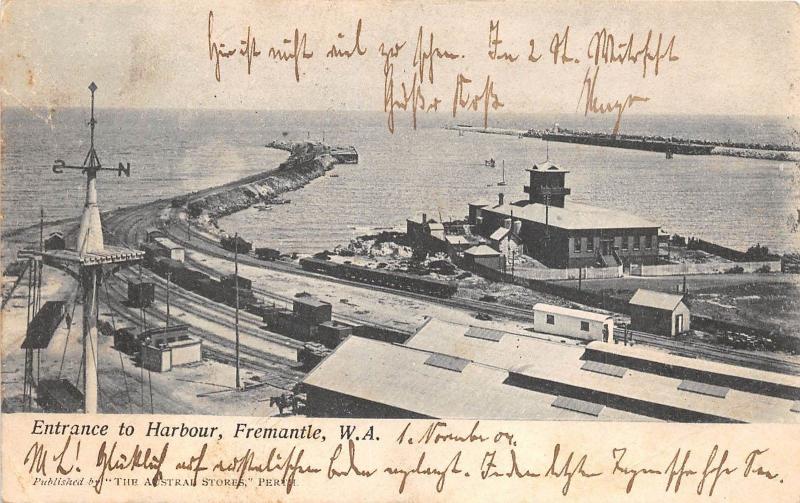 Hier ist nicht viel zu sehen. In 2 St. Weiterfahrt
Grüße
N
S
Entrance to Harbour, Fremantle, W.A. 1. November 04.
M. L! Glücklich auf australischem Boden angelangt. In den letzten Tagen sehr hohe See.
Published by "THE AUSTRAL STORES," PERTH.